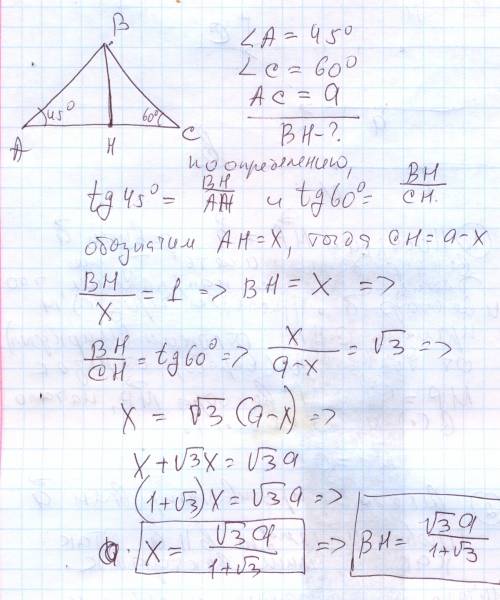 B
∠A = 45°
∠C = 60°
AC = a
45° 60°
A H C
BH-?
по определению,
tg 45° = BH/AH и tg 60° = BH/CH.
обозначим AH = X, тогда CH = a-x
BH/X = 1 => BH = X =>
BH/CH = tg 60° => X/(a-x) = √3 =>
X = √3 (a-x) =>
X + √3X = √3 a
(1+√3) X = √3 a =>
X = √3 a/(1+√3) => BH = √3 a/(1+√3)